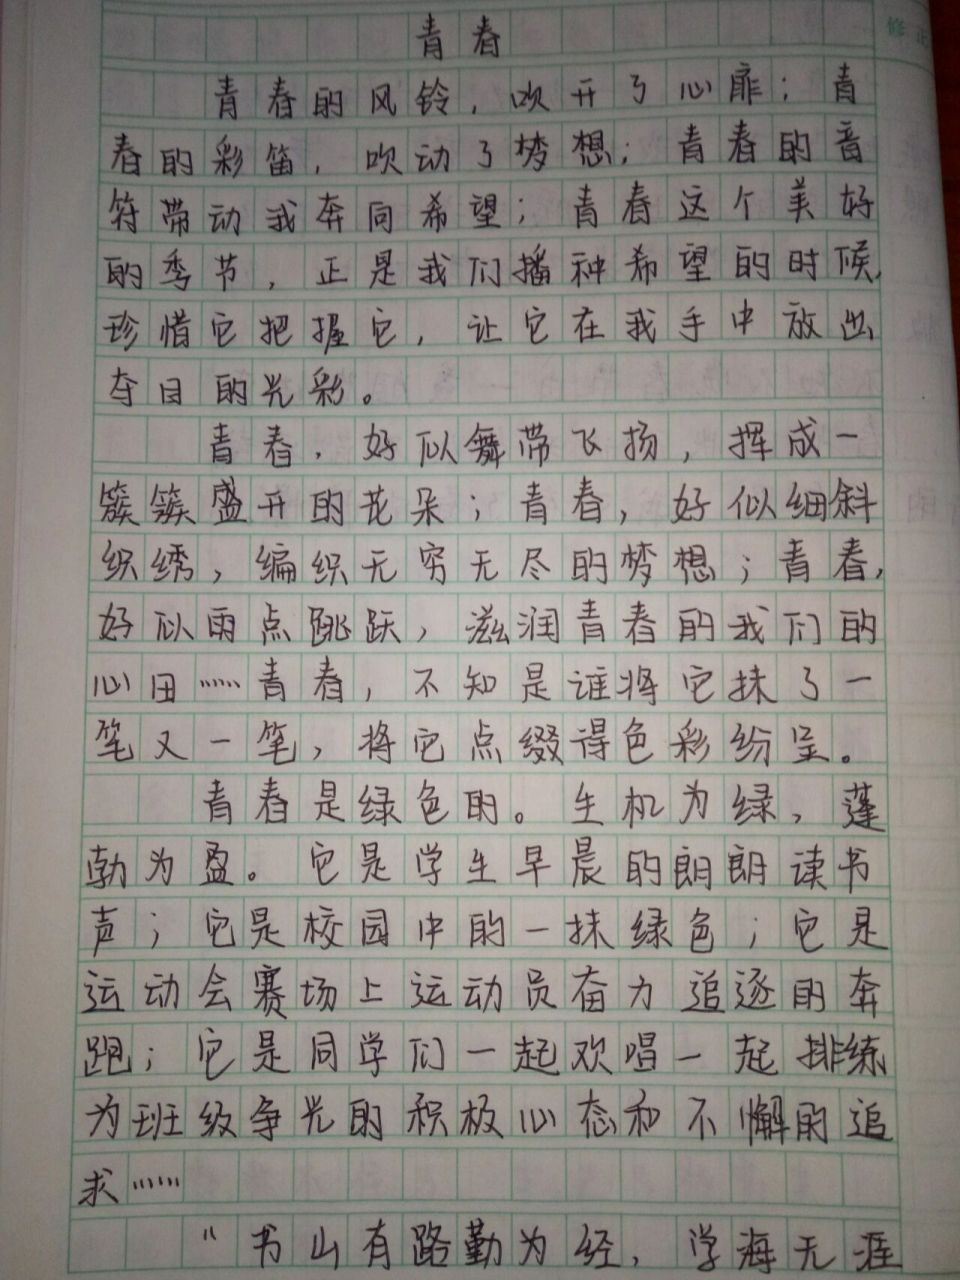 青春
青春的风铃，吹开了心扉；青
春的彩笛，吹动了梦想；青春的音
符带动我奔向希望；青春这个美好
的季节，正是我们播种希望的时候，
珍惜它把握它，让它在我手中放出
夺目的光彩。
青春，好似舞带飞扬，挥成一
簇簇盛开的花朵；青春，好似细斜
织绣，编织无穷无尽的梦想；青春，
好似雨点跳跃，滋润青春的我们的
心田……青春，不知是谁将它抹了一
笔又一笔，将它点缀得色彩纷呈。
青春是绿色的。生机为绿，蓬
勃为盈。它是学生早晨的朗朗读书
声；它是校园中的一抹绿色；它是
运动会赛场上运动员奋力追逐的奔
跑；它是同学们一起欢唱一起排练
为班级争光的积极心态和不懈的追
求……
“书山有路勤为经，学海无涯